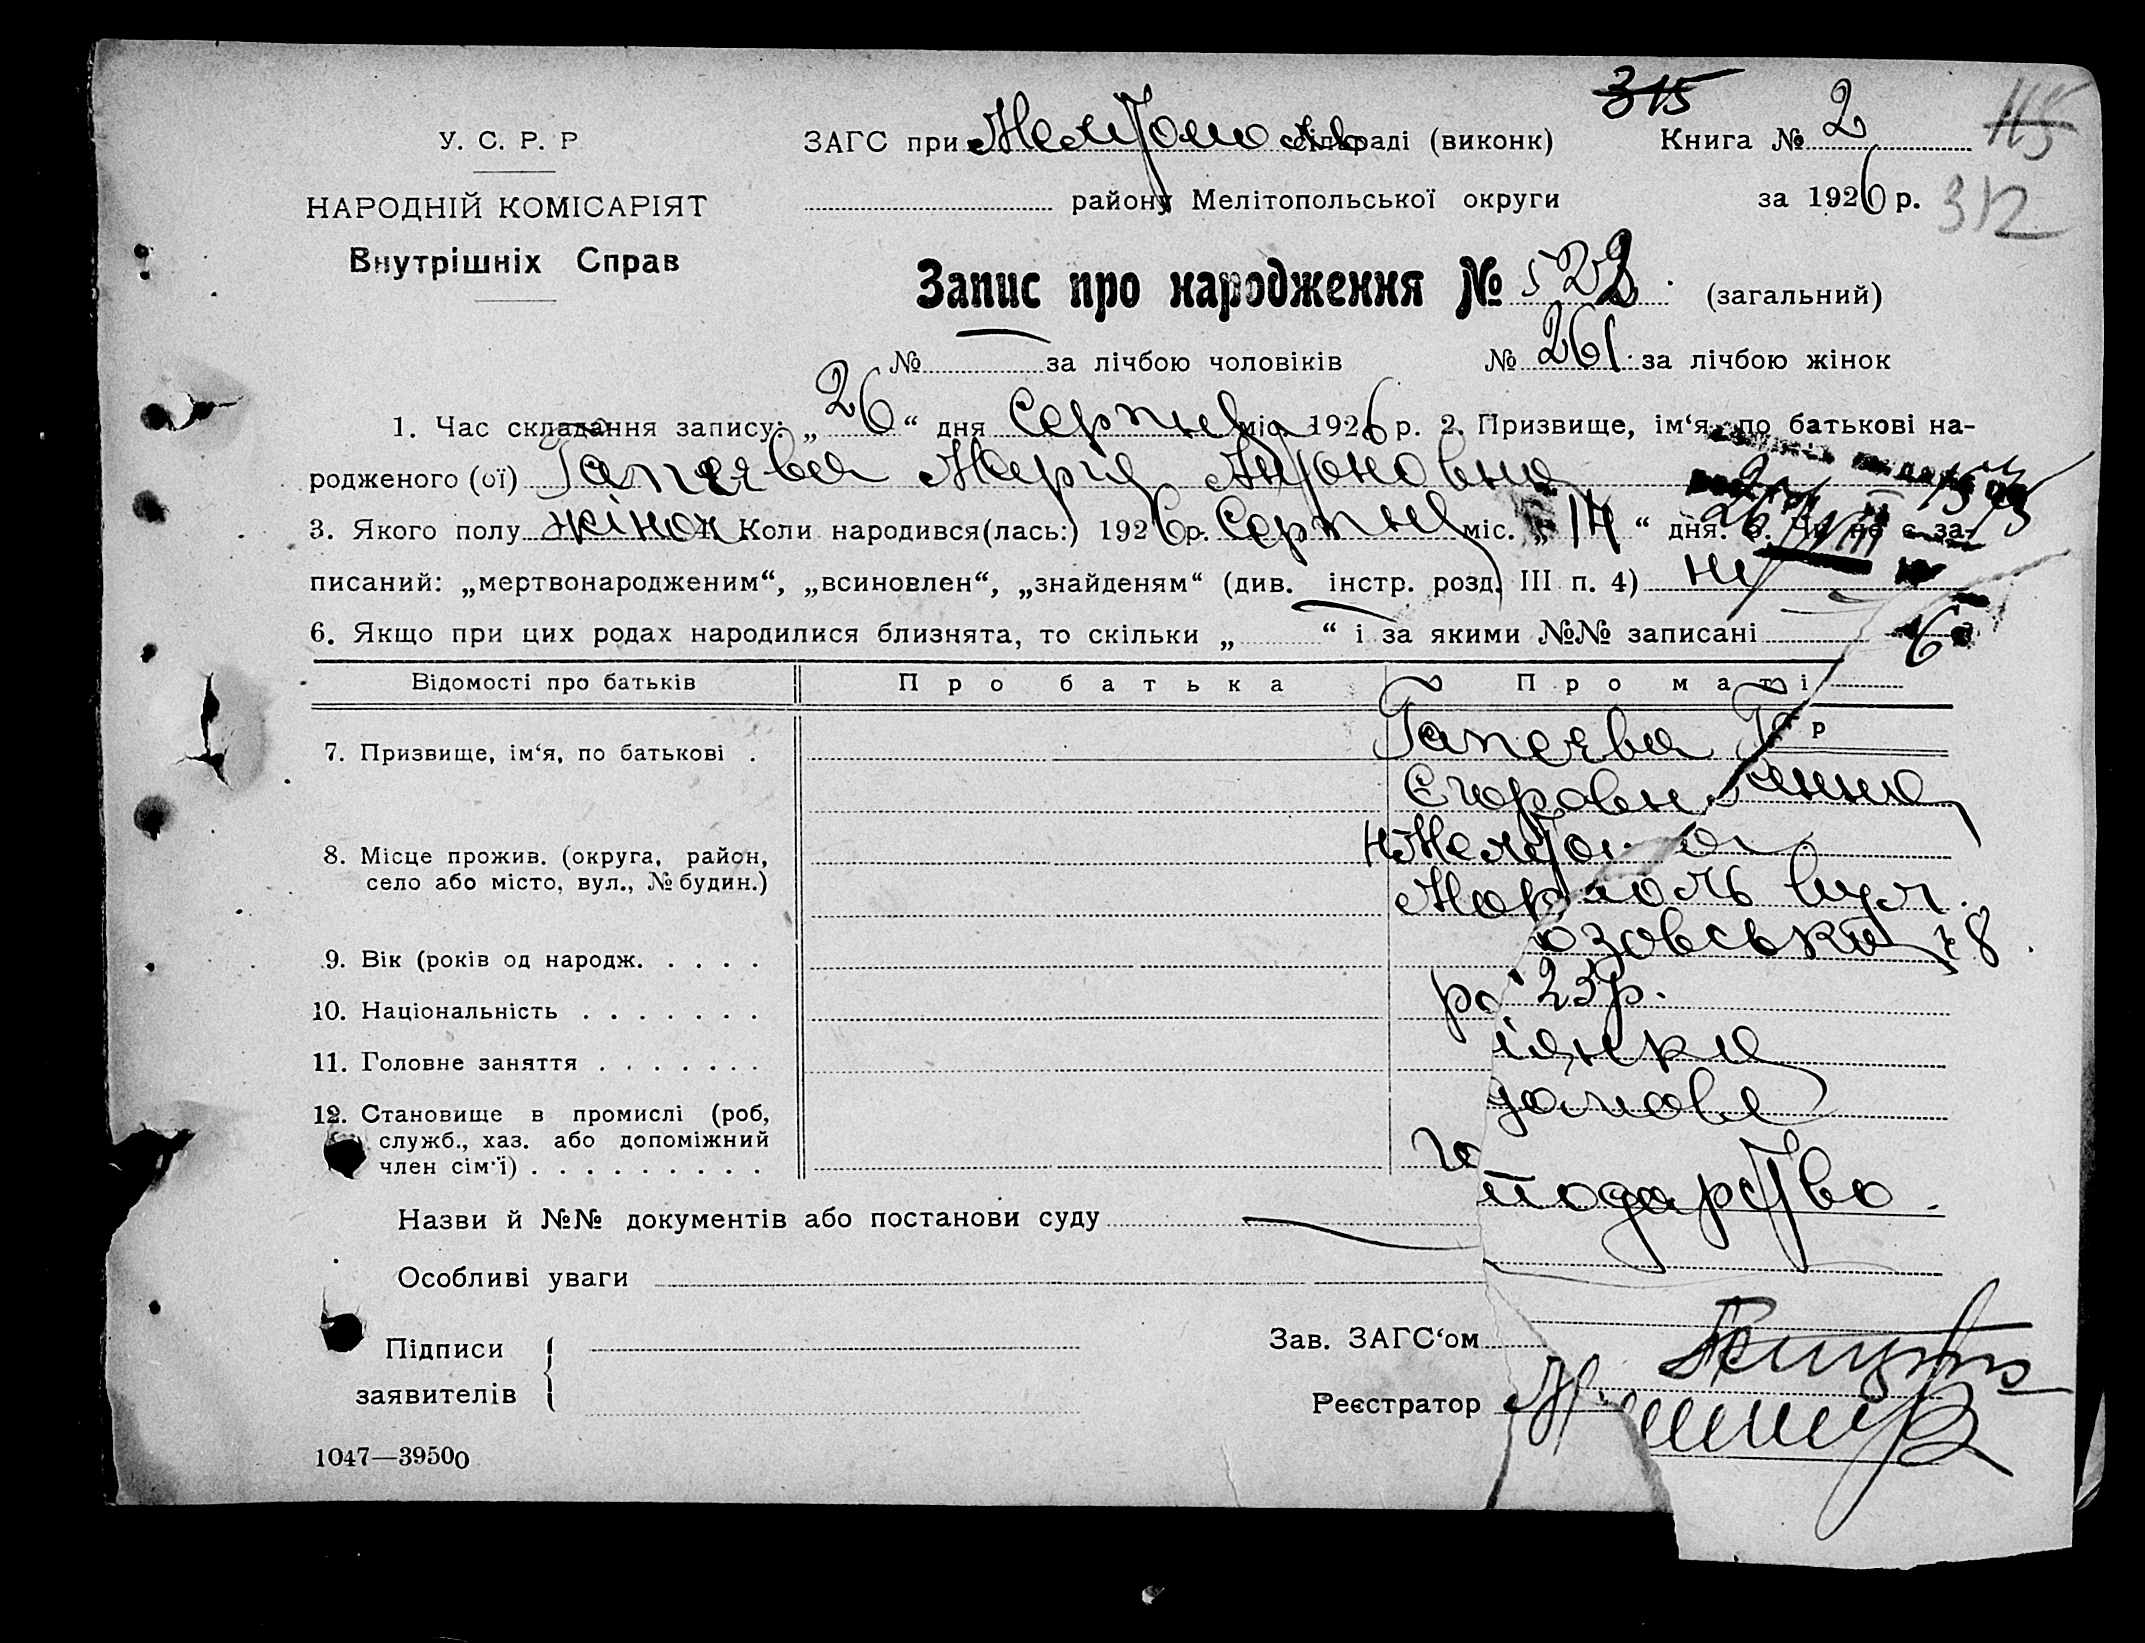 315
У. С. Р. Р
ЗАГС при Мелітопольс сільраді (виконк)
Книга № 2
115
НАРОДНІЙ КОМІСАРІЯТ
району Мелітопольської округи
за 1926 р.
312
Внутрішніх Справ
Запис про народження № 522 (загальний)
№ за лічбою чоловіків № 261 за лічбою жінок
1. Час складання запису: „26“ дня Серпня міс. 1926 р. 2. Призвище, ім‘я, по батькові на-
родженого (ої) Гапеєва Марія Антоновна
3. Якого полу жіноч 4. Коли народився(лась:) 1926 р. Серпня міс. „14“ дня. 5. Чи не є за-
писаний: „мертвонародженим“, „всиновлен“, „знайденям“ (див. інстр. розд. III п. 4) Ні
6. Якщо при цих родах народилися близнята, то скільки „ “ і за якими №№ записані
Відомості про батьків Про батька Про маті р
7. Призвище, ім‘я, по батькові . Гапеєва Ганна
Єгоровн
8. Місце прожив. (округа, район,
село або місто, вул., № будин.)
поль вул.
озовська 8
9. Вік (років од народж. . . . . 23 р.
10. Національність . . . . . . .
11. Головне заняття . . . . . . . домове
12. Становище в промислі (роб,
служб., хаз. або допоміжний
член сім‘ї) . . . . . . . . . подарство.
Назви й №№ документів або постанови суду
Особливі уваги
Підписи
заявителів
Зав. ЗАГС‘ом
Реєстратор
1047—39500